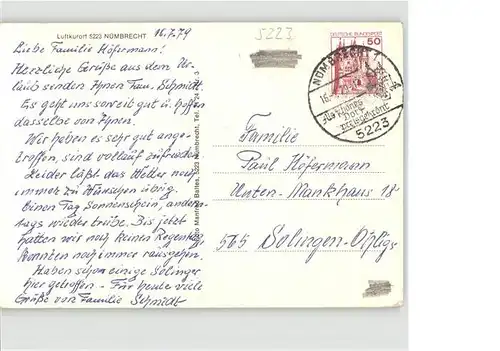 Luftkurort 5223 NÜMBRECHT
16.7.79
5223
Liebe Familie Höfermann!
Herzliche Grüße aus dem Ur-
laub senden Ihnen Fam. Schmidt.
Es geht uns soweit gut u. hoffen
dasselbe von Ihnen.
Wir haben es sehr gut ange-
troffen, sind vollauf zufrieden.
Leider läßt das Wetter noch
immer zu Wünschen übrig.
Einen Tag Sonnenschein, andern-
tags wieder trübe. Bis jetzt
hatten wir noch keinen Regentag
konnten noch immer rausgehen.
Haben schon einige Solinger
hier getroffen. – Für heute viele
Grüße von Familie Schmidt
DEUTSCHE BUNDESPOST
50
NÜMBRECHT 1
16.
Als schönes
Dorf
5223
Familie
Paul Höfermann
Unten-Mankhaus 18
565 Solingen-Ohligs